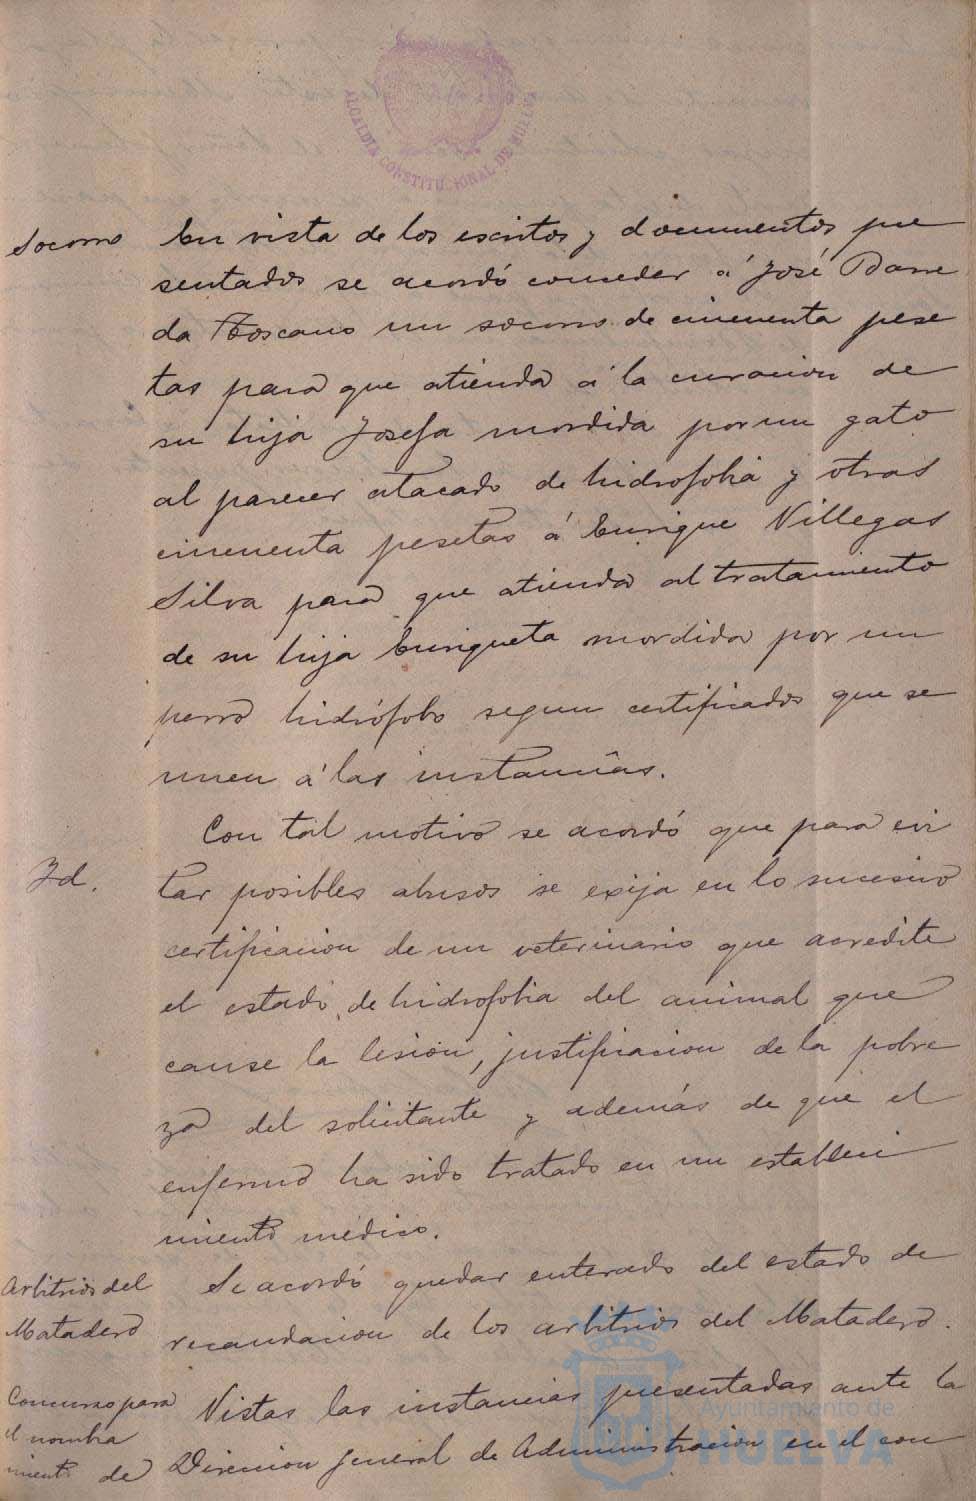 ALCALDIA CONSTITUCIONAL DE HUELVA
Socorro
En vista de los escritos y documentos pre
sentados se acordó conceder á José Barre
da Toscano un socorro de cincuenta pese
tas para que atienda á la curacion de
su hija Josefa mordida por un gato
al parecer atacado de hidrofobia y otras
cincuenta pesetas á Enrique Villegas
Silva para que atienda al tratamiento
de su hija Enriqueta mordida por un
perro hidrófobo segun certificados que se
unen á las instancias.
Con tal motivo se acordó que para evi
Id.
tar posibles abusos se exija en lo sucesivo
certificacion de un veterinario que acredite
el estado de hidrofobia del animal que
cause la lesion, justificacion de la pobre
za del solicitante y además de que el
enfermo ha sido tratado en un estableci
miento médico.
Arbitrios del
Matadero
Se acordó quedar enterado del estado de
recaudacion de los arbitrios del Matadero.
Concurso para
el nombra
miento de
Vistas las instancias presentadas ante la
Direccion general de Administracion en el con
Ayuntamiento de
HUELVA